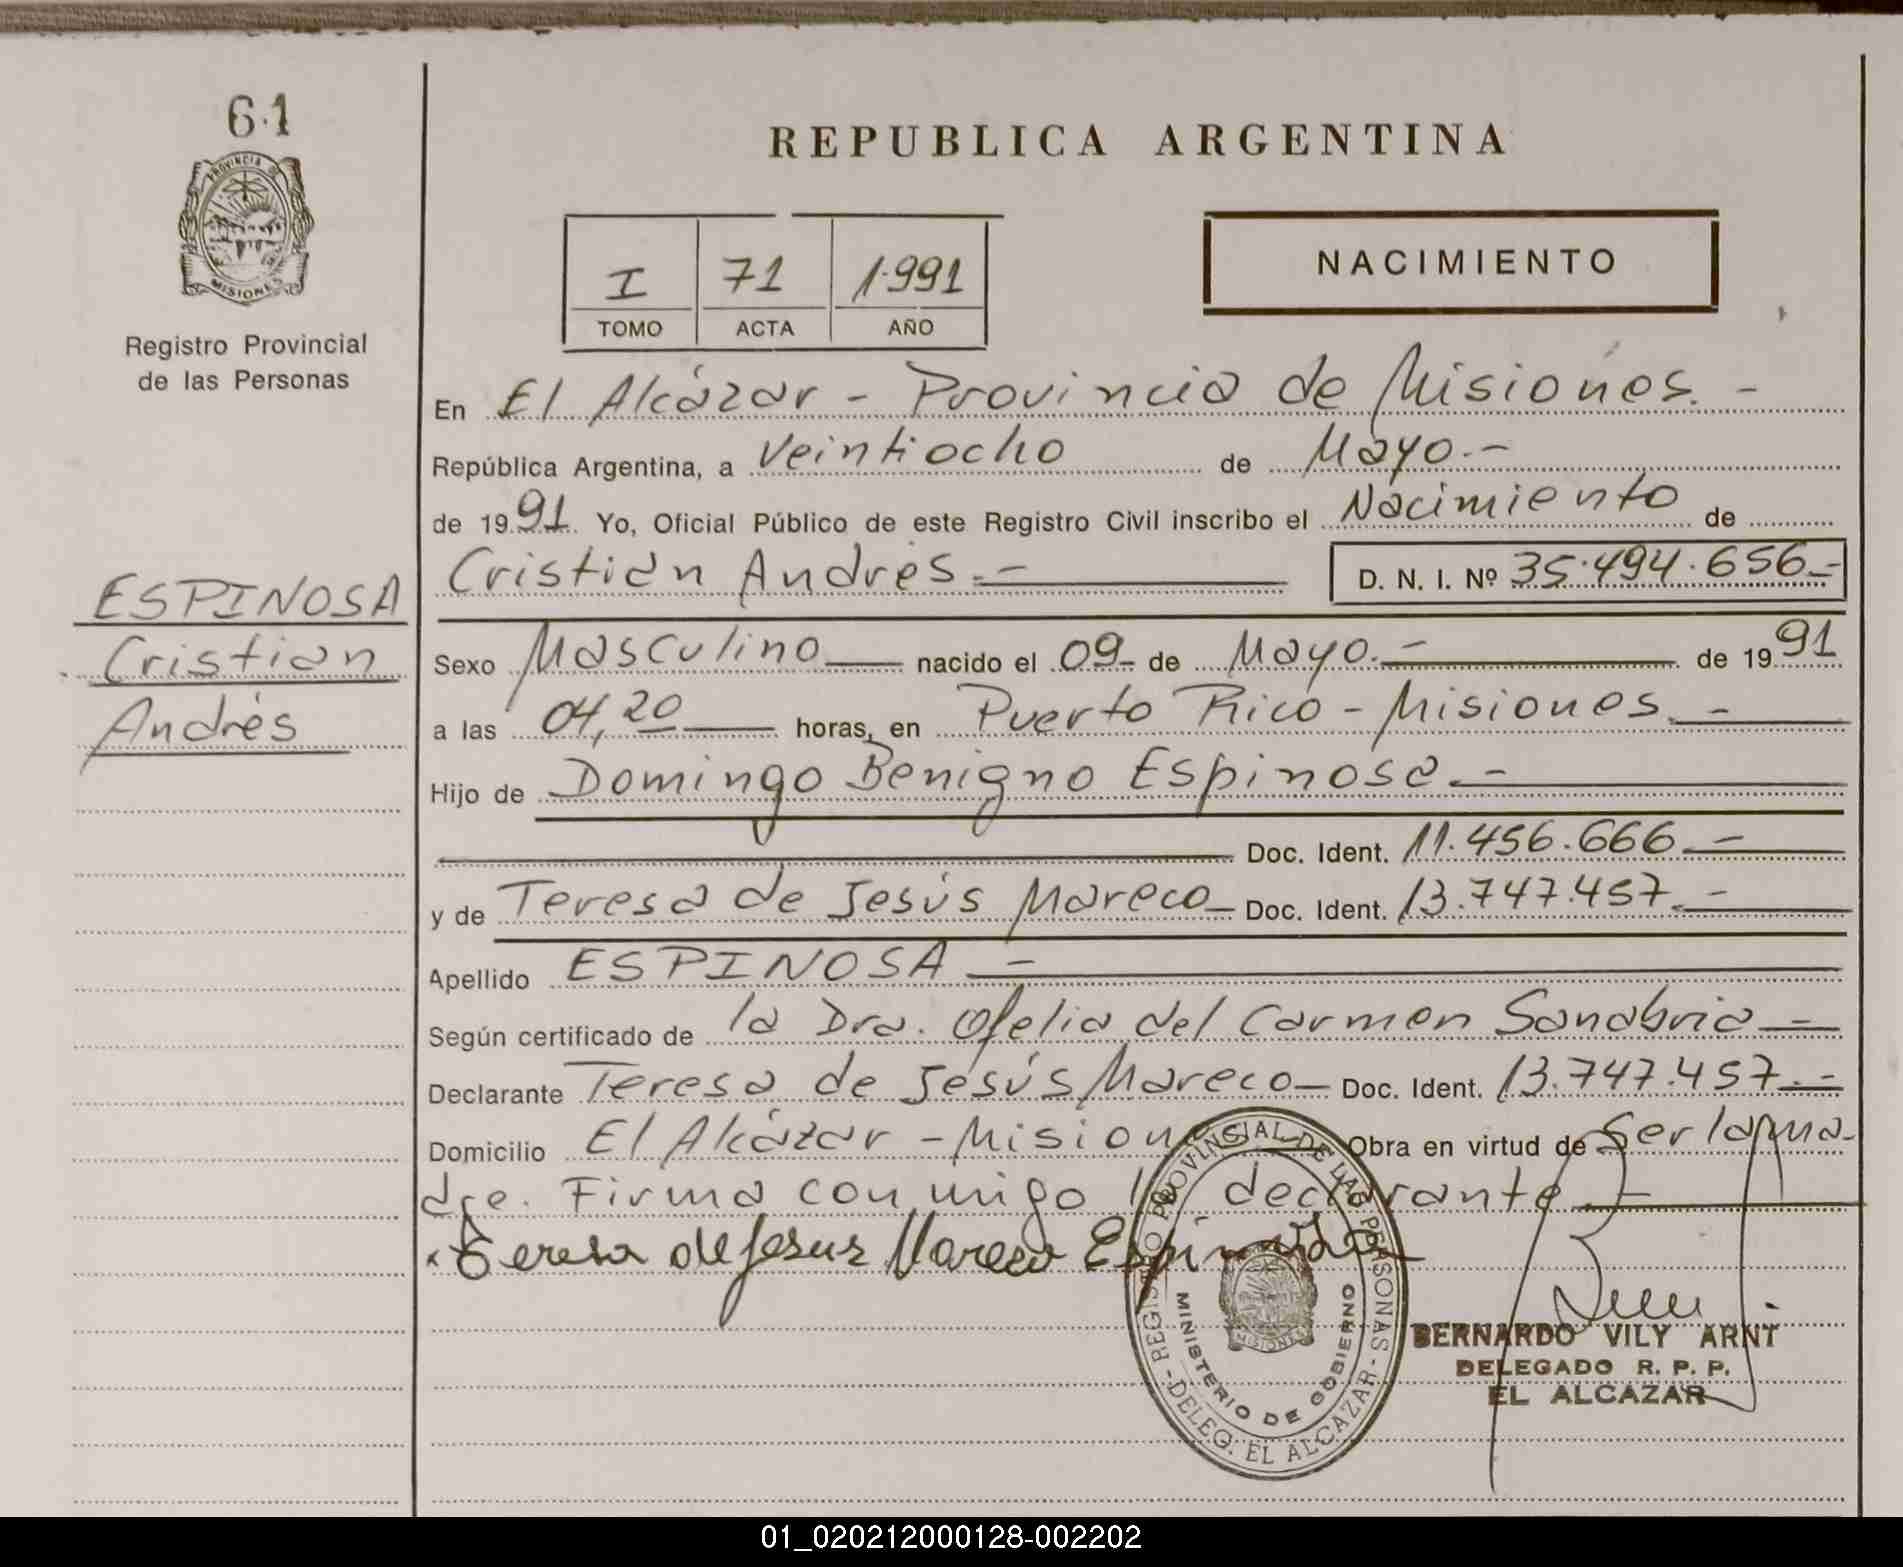 61
PROVINCIA DE
MISIONES
Registro Provincial
de las Personas
ESPINOSA
Cristian
Andrés
REPUBLICA ARGENTINA
I 71 1.991
TOMO ACTA AÑO
NACIMIENTO
En El Alcázar - Provincia de Misiones. -
República Argentina, a Veintiocho de Mayo.-
de 1991. Yo, Oficial Público de este Registro Civil inscribo el Nacimiento de
Cristian Andrés.- D. N. I. Nº 35.494.656.-
Sexo Masculino nacido el 09- de Mayo.- de 1991
a las 04,20 horas, en Puerto Rico - Misiones. -
Hijo de Domingo Benigno Espinosa.-
Doc. Ident. 11.456.666.-
y de Teresa de Jesús Mareco- Doc. Ident. 13.747.457.-
Apellido ESPINOSA -
Según certificado de la Dra. Ofelia del Carmen Sanabria -
Declarante Teresa de Jesús Mareco- Doc. Ident. 13.747.457.-
Domicilio El Alcázar - Misiones Obra en virtud de Ser la ma-
dre. Firma conmigo la declarante -
Teresa de Jesus Mareco Espinosa
REGISTRO PROVINCIAL DE LAS PERSONAS - DELEG. EL ALCAZAR -
MINISTERIO DE GOBIERNO
MISIONES
BERNARDO VILY ARNT
DELEGADO R. P. P.
EL ALCAZAR
01_020212000128-002202